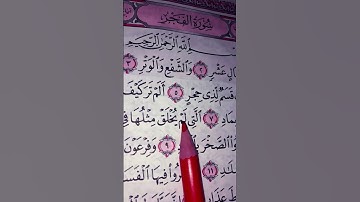 سُورَةُ الْفَجْرِ
ـمِ اللَّهِ الرَّحْمَٰنِ الرَّحِيمِ
لٍ عَشْرٍ ٢ وَالشَّفْعِ وَالْوَتْرِ ٣
قَسَمٌ لِّذِي حِجْرٍ ٥ أَلَمْ تَرَ كَيْفَ
ـمَادِ ٧ الَّتِي لَمْ يُخْلَقْ مِثْلُهَا فِي
وا الصَّخْرَ بِا ٩ وَفِرْعَوْنَ
ـلَادِ ١١ ـرُوا فِيهَا الْفَسَـ
ـطَ عَذَا